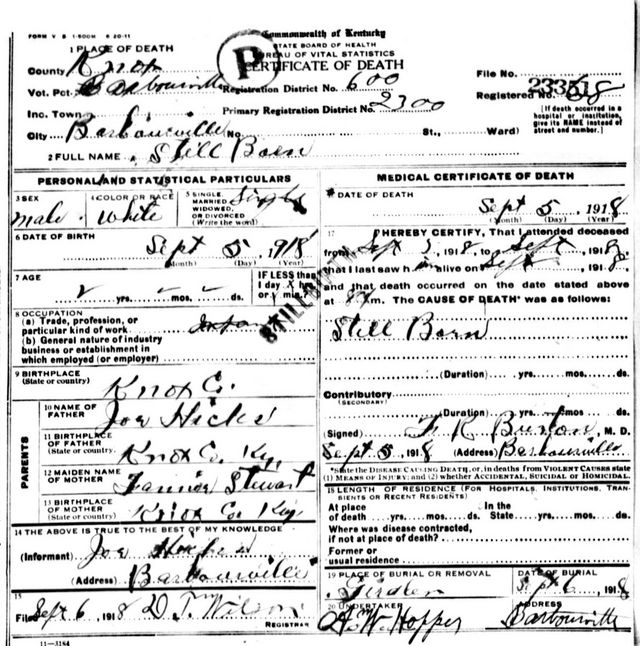 FORM V S 1-500M 6 20-11
Commonwealth of Kentucky
STATE BOARD OF HEALTH
BUREAU OF VITAL STATISTICS
CERTIFICATE OF DEATH
P
1 PLACE OF DEATH
County Knox
Vot. Pct. Barbourville Registration District No. 600
File No.
Registered No.
Inc. Town Primary Registration District No. 2300
[If death occurred in a hospital or institution, give its NAME instead of street and number.]
City Barbourville No. St., Ward)
2 FULL NAME Still Born
PERSONAL AND STATISTICAL PARTICULARS
3 SEX male
4 COLOR OR RACE white
5 SINGLE, MARRIED, WIDOWED, OR DIVORCED (Write the word) Single
6 DATE OF BIRTH
Sept 5, 1918
(Month) (Day) (Year)
7 AGE
yrs. mos. ds.
IF LESS than
1 day hrs
or min.
STILLBIRTH
8 OCCUPATION
(a) Trade, profession, or
particular kind of work
(b) General nature of industry
business or establishment in
which employed (or employer)
9 BIRTHPLACE
(State or country) Knox Co.
PARENTS
10 NAME OF
FATHER Joe Hicks
11 BIRTHPLACE
OF FATHER
(State or country) Knox Co. Ky.
12 MAIDEN NAME
OF MOTHER Stewart
13 BIRTHPLACE
OF MOTHER
(State or country) Knox Co Ky
14 THE ABOVE IS TRUE TO THE BEST OF MY KNOWLEDGE
(Informant) Joe
(Address) Barbourville
15
Filed Sept 6, 1918 D. T. Wilson
REGISTRAR
11-3184
MEDICAL CERTIFICATE OF DEATH
DATE OF DEATH
Sept 5, 1918
(Month) (Day) (Year)
17 I HEREBY CERTIFY, That I attended deceased
from Sept 5, 1918, to Sept 1918,
that I last saw h im alive on Sept 1918,
and that death occurred on the date stated above
at m. The CAUSE OF DEATH* was as follows:
Still Born
(Duration) yrs. mos. ds.
Contributory
(SECONDARY)
(Duration) yrs. mos. ds.
(Signed) M. D.
Sept 5, 1918 (Address) Barbourville
*State the DISEASE CAUSING DEATH, or, in deaths from VIOLENT CAUSES state
(1) MEANS OF INJURY; and (2) whether ACCIDENTAL, SUICIDAL or HOMICIDAL.
18 LENGTH OF RESIDENCE (FOR HOSPITALS, INSTITUTIONS, TRANSIENTS OR RECENT RESIDENTS)
At place In the
of death yrs. mos. ds. State yrs. mos. ds.
Where was disease contracted,
if not at place of death?
Former or
usual residence
19 PLACE OF BURIAL OR REMOVAL
DATE OF BURIAL
Sept 6, 1918
20 UNDERTAKER
A. W. Hopper
ADDRESS
Barbourville